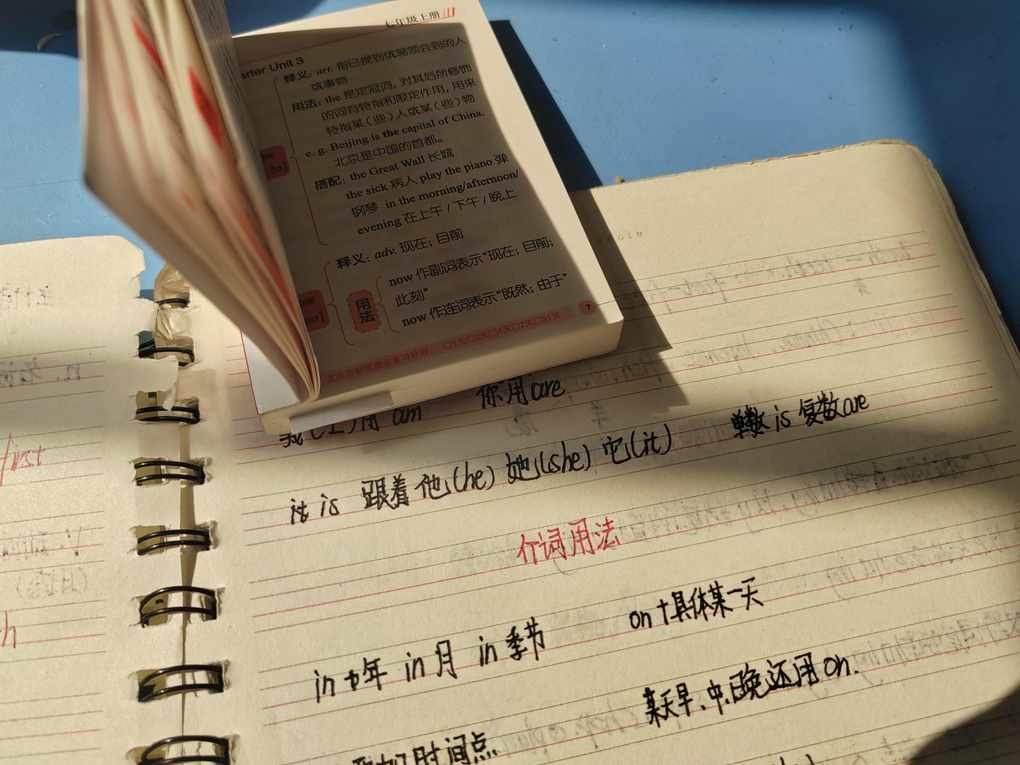 七年级上册
Unit 3
释义: art. 指已提到或易领会到的人
或事物
用法: the 是定冠词, 对其后所修饰
的词有特指和限定作用, 用来
特指某(些)人或某(些)物
e. g. Beijing is the capital of China.
北京是中国的首都。
搭配: the Great Wall 长城
the sick 病人 play the piano 弹
钢琴 in the morning/afternoon/
evening 在上午/下午/晚上
释义: adv. 现在; 目前
用法
now 作副词表示“现在; 目前;
此刻”
now 作连词表示“既然; 由于”
7
我(I)用 am 你用are
it is 跟着他(he) 她(she) 它(it) 单数 is 复数are
介词用法
in+年 in 月 in 季节 on+具体某一天
某天早、中、晚还用on.
时间点